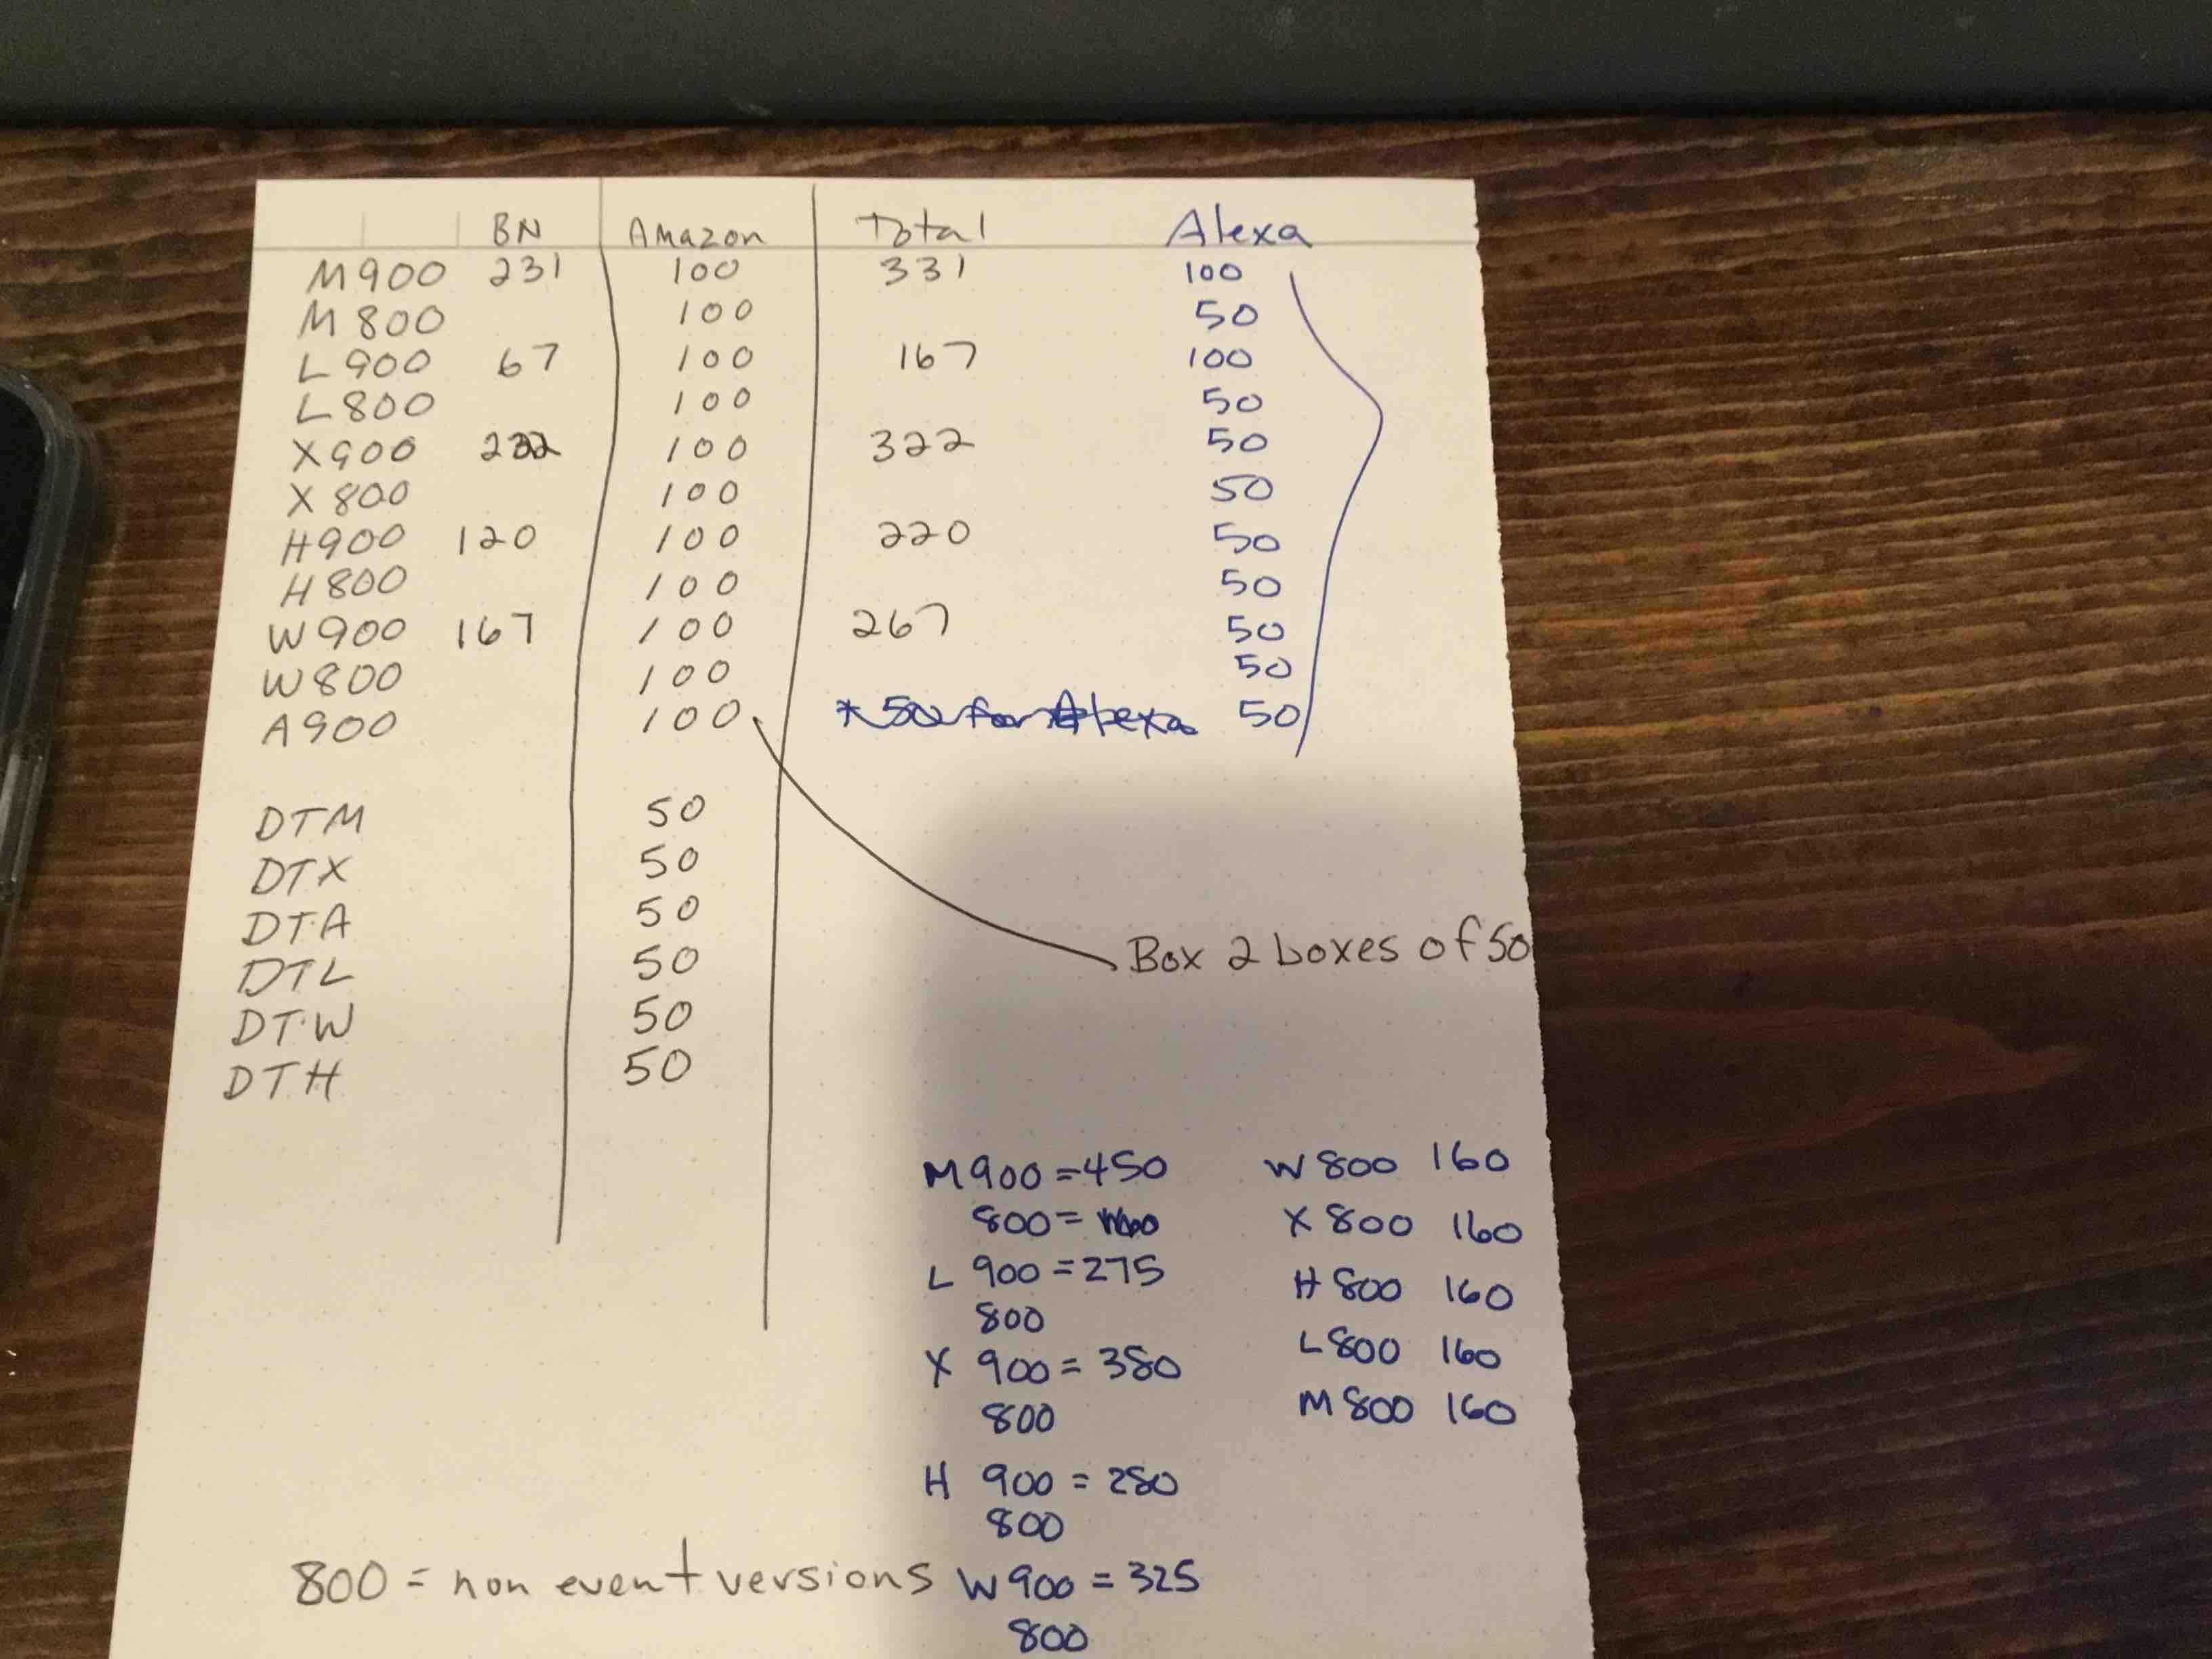 BN Amazon Total Alexa
M900 231 100 331 100
M800 100 50
L900 67 100 167 100
L800 100 50
X900 100 322 50
X800 100 50
H900 120 100 220 50
H800 100 50
W900 167 100 267 50
W800 100 50
A900 100 *50 for Alexa 50
DTM 50
DTX 50
DTA 50
DTL 50
DTW 50
DTH 50
Box 2 boxes of 50
M900 = 450
800 =
L 900 = 275
800
X 900 = 380
800
H 900 = 280
800
W900 = 325
800
W800 160
X800 160
H800 160
L800 160
M800 160
800 = non event versions